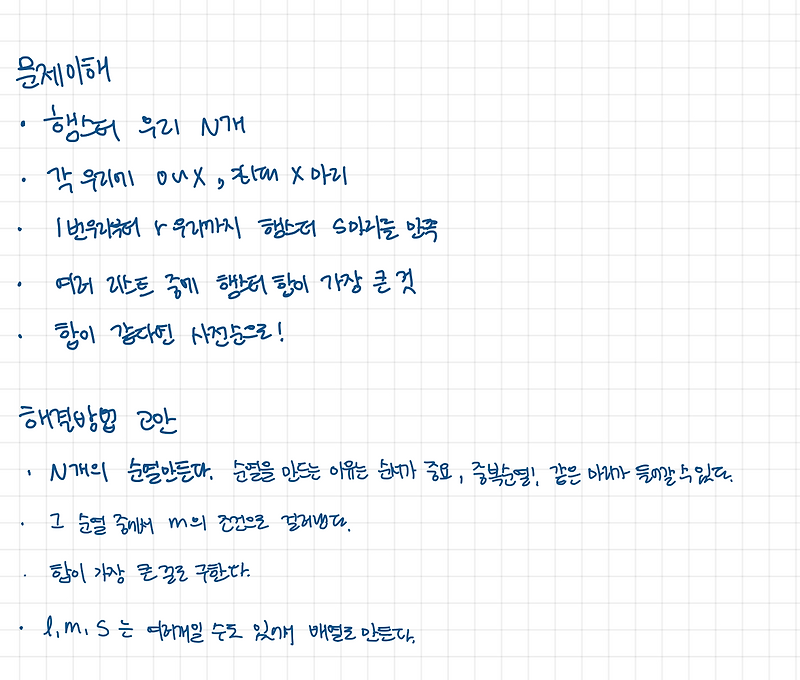 문제이해
• 햄스터 우리 N개
• 각 우리에 0~X, 최대 X마리
• l번우리부터 r우리까지 햄스터 S마리를 만족
• 여러 리스트 중에 햄스터 합이 가장 큰 것
• 합이 같다면 사전순으로!
해결방법 고안
• N개의 순열만든다. 순열을 만드는 이유는 순서가 중요, 중복순열!, 같은 마리가 들어갈 수 있다.
• 그 순열 중에서 m의 조건으로 걸러낸다.
• 합이 가장 큰걸로 구한다.
• l, m, S 는 여러개일 수도 있게 배열로 만든다.